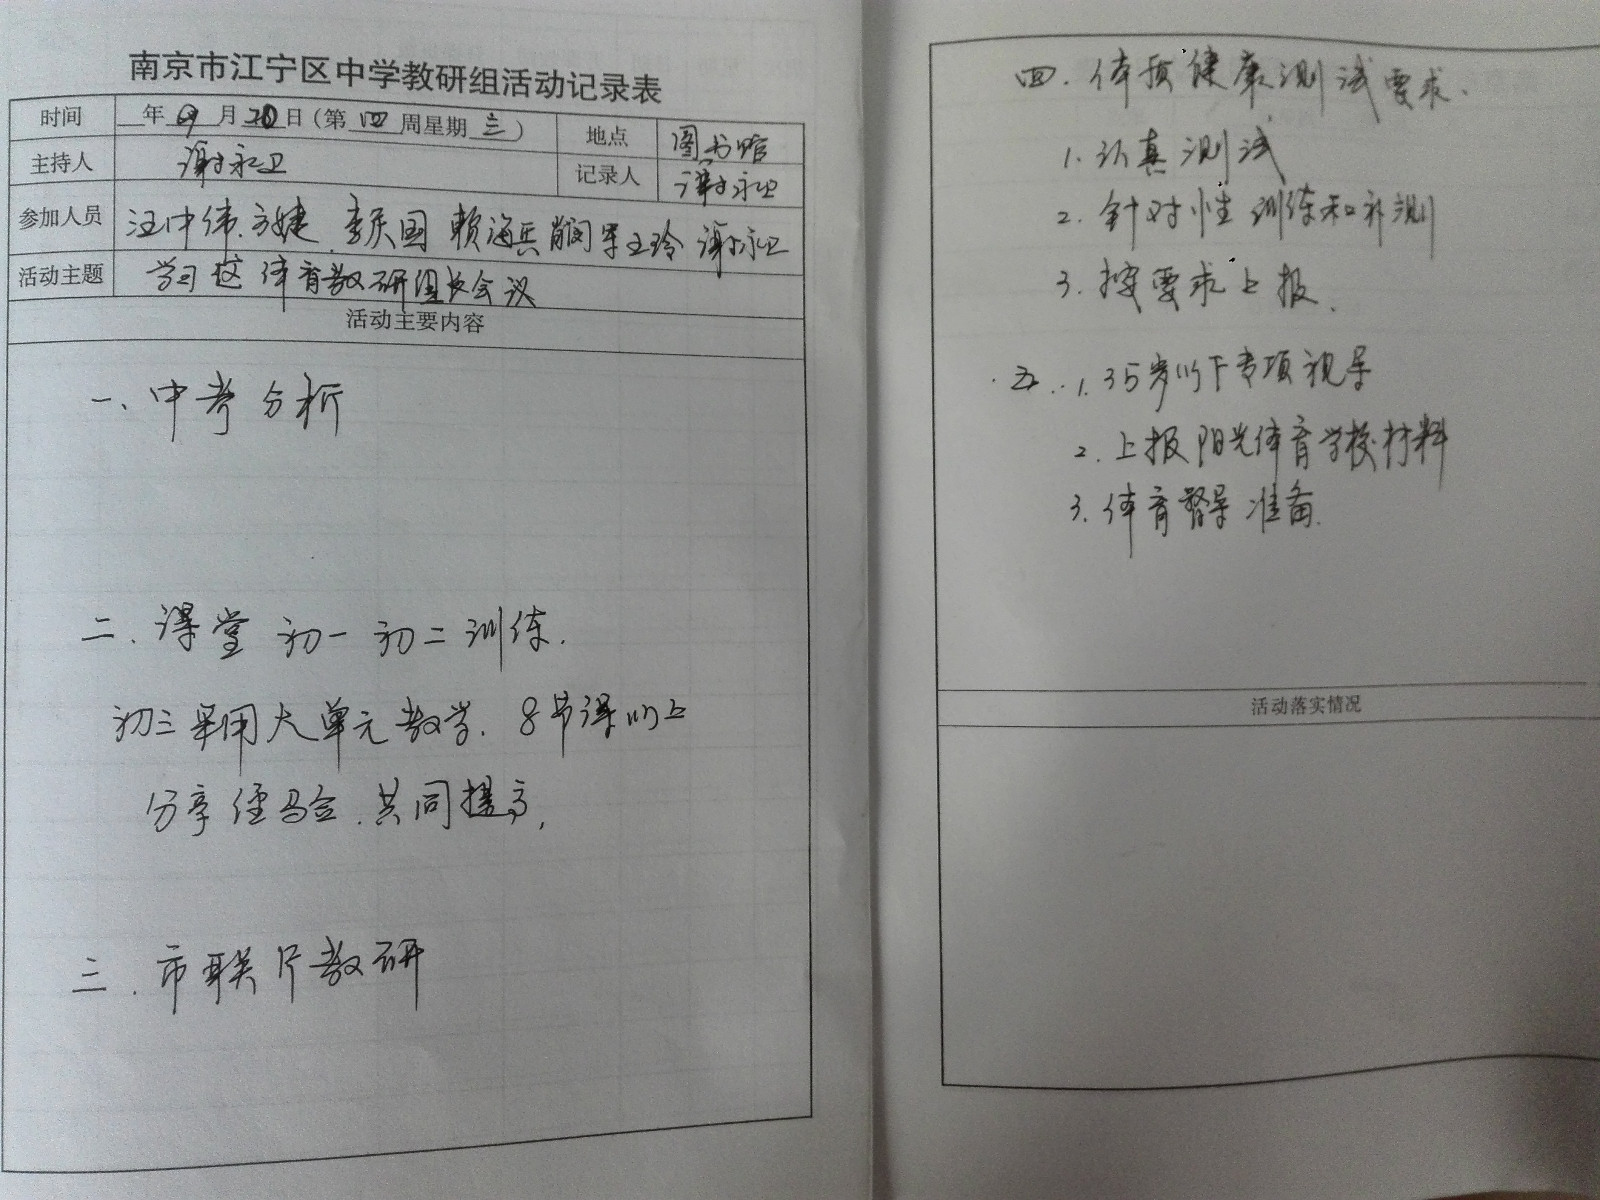 南京市江宁区中学教研组活动记录表
时间 年 9 月 20 日(第 四 周星期 三 ) 地点 图书馆
主持人 谢永卫 记录人 谢永卫
参加人员 汪中伟 方婕 李庆国 赖海兵 军 王玲 谢永卫
活动主题 学习区体育教研组长会议
活动主要内容
一、中考分析
二、课堂 初一 初二训练.
初三采用大单元教学. 8节课以上
分享经验.共同提高,
三、市联片教研
四.体质健康测试要求.
1.认真测试
2.针对性训练和补测
3.按要求上报.
五..1.35岁以下专项视导
2.上报阳光体育学校材料
3.体育督导准备.
活动落实情况